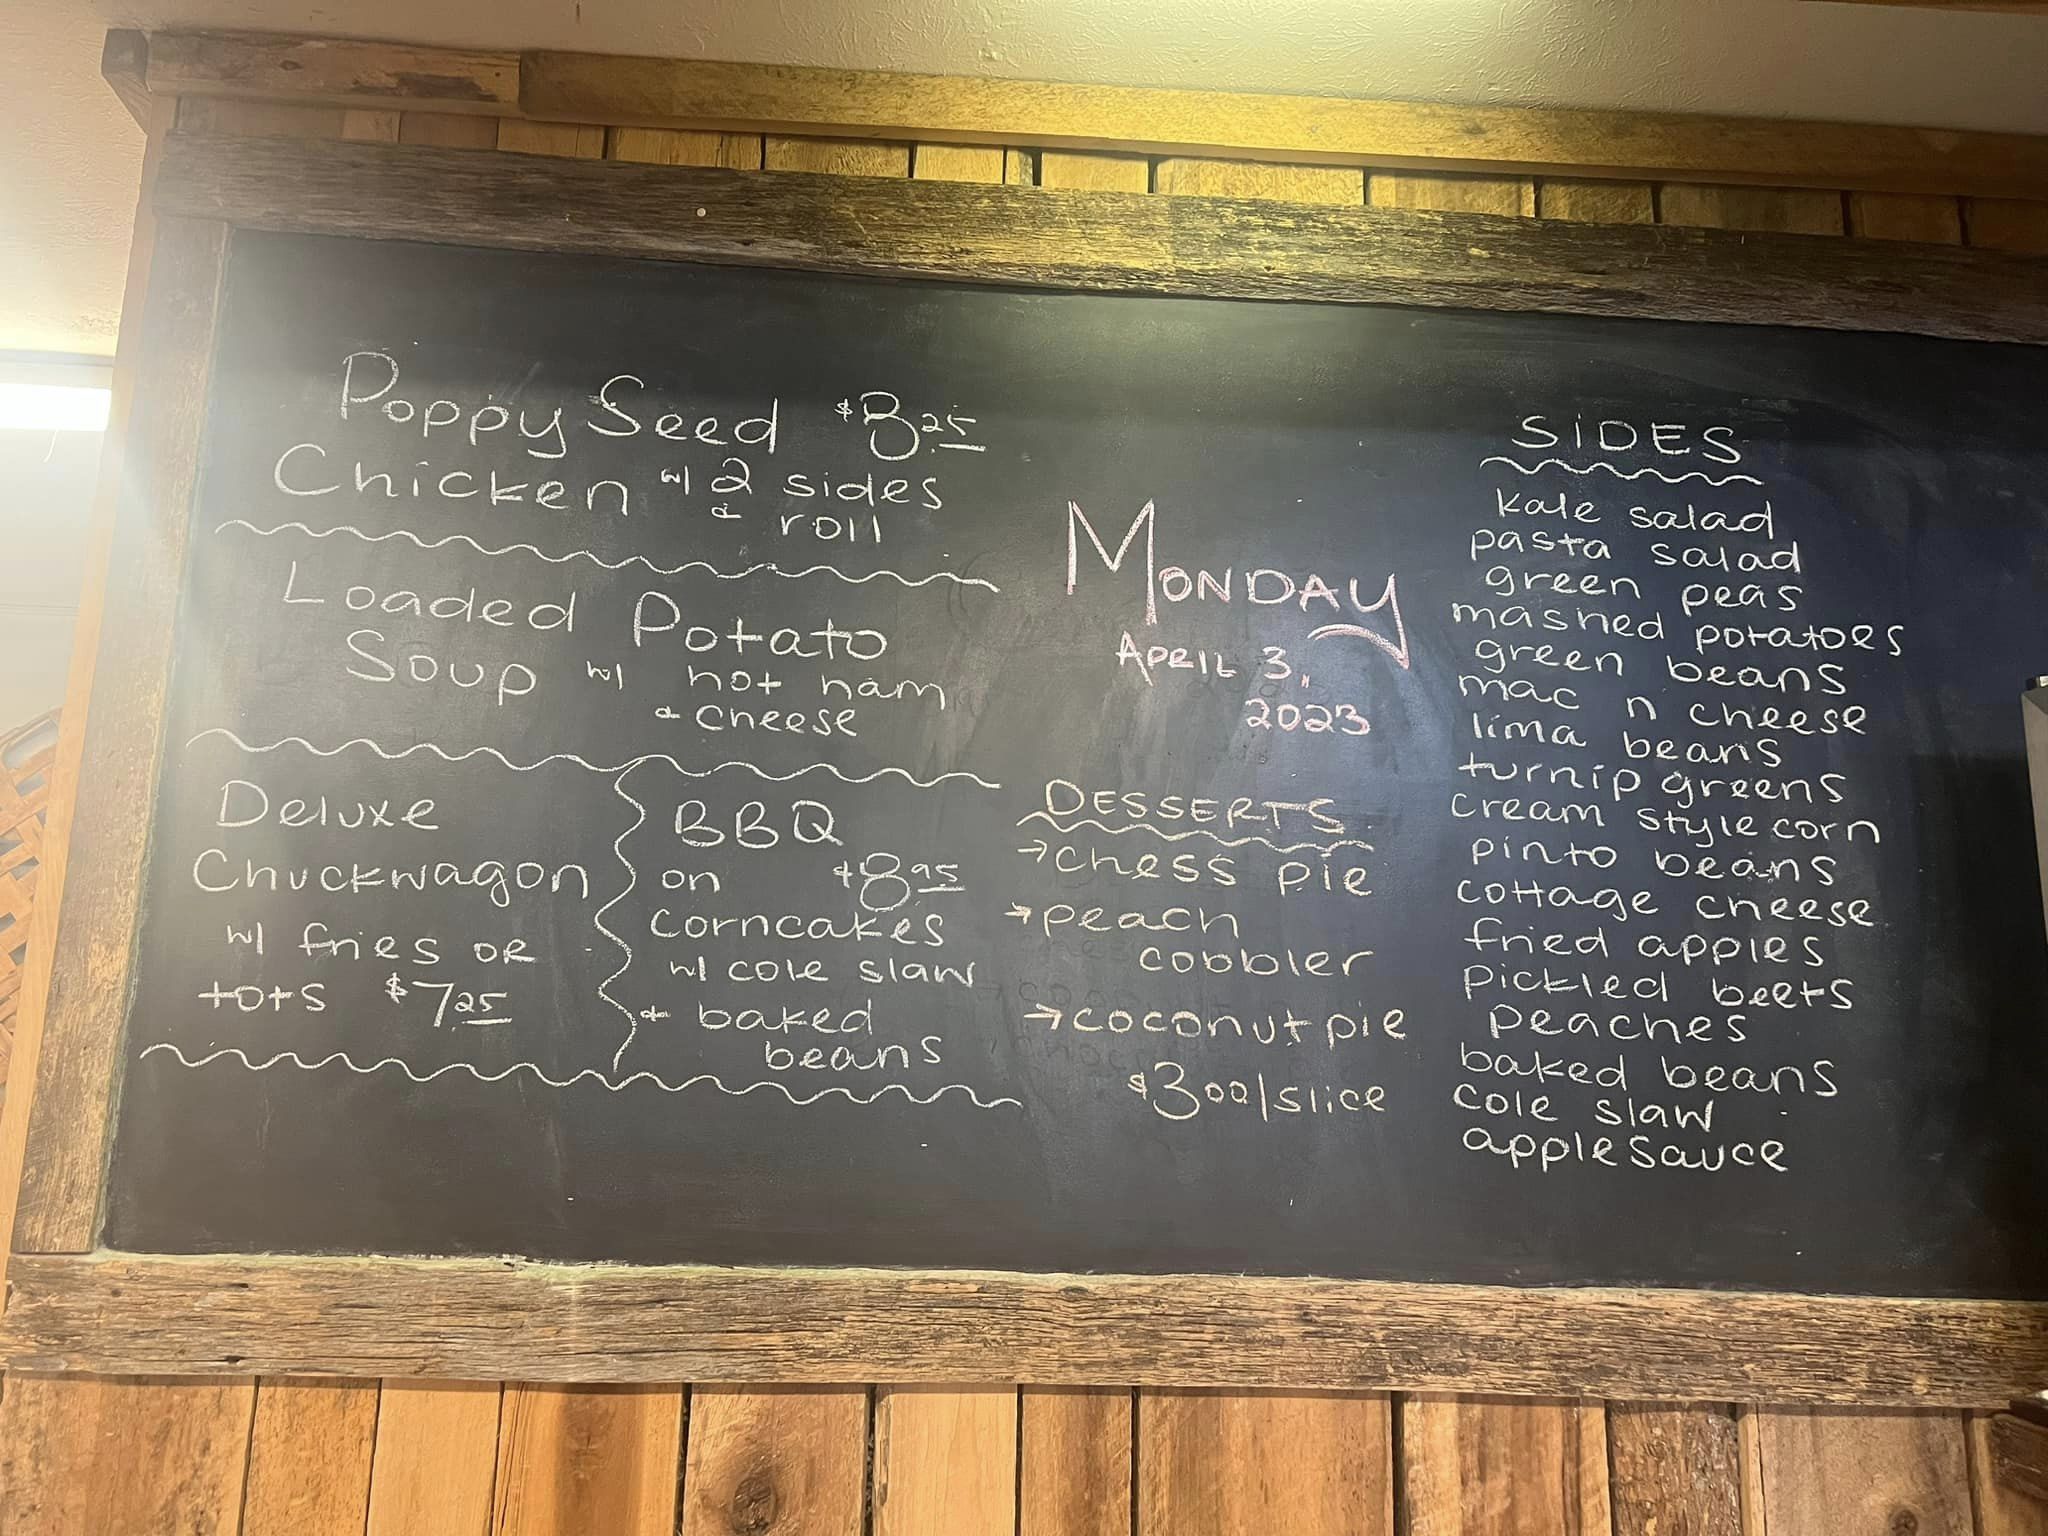 Poppy Seed $8.25
Chicken w/ 2 sides
& roll
Loaded Potato
Soup w/ hot ham
& cheese
Deluxe
Chuckwagon
w/ fries or
tots $7.25
BBQ
on $8.95
corncakes
w/ cole slaw
& baked
beans
MONDAY
APRIL 3,
2023
DESSERTS
→chess pie
→peach
cobbler
→coconut pie
$3.00/slice
SiDES
kale salad
pasta salad
green peas
mashed potatoes
green beans
mac n cheese
lima beans
turnip greens
cream style corn
pinto beans
cottage cheese
fried apples
pickled beets
peaches
baked beans
cole slaw
applesauce